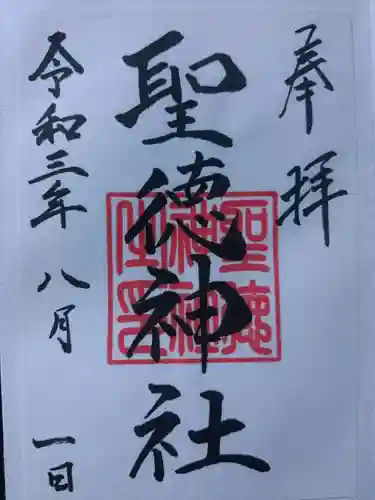 奉拝
聖徳神社
聖徳神社之印
令和三年八月一日